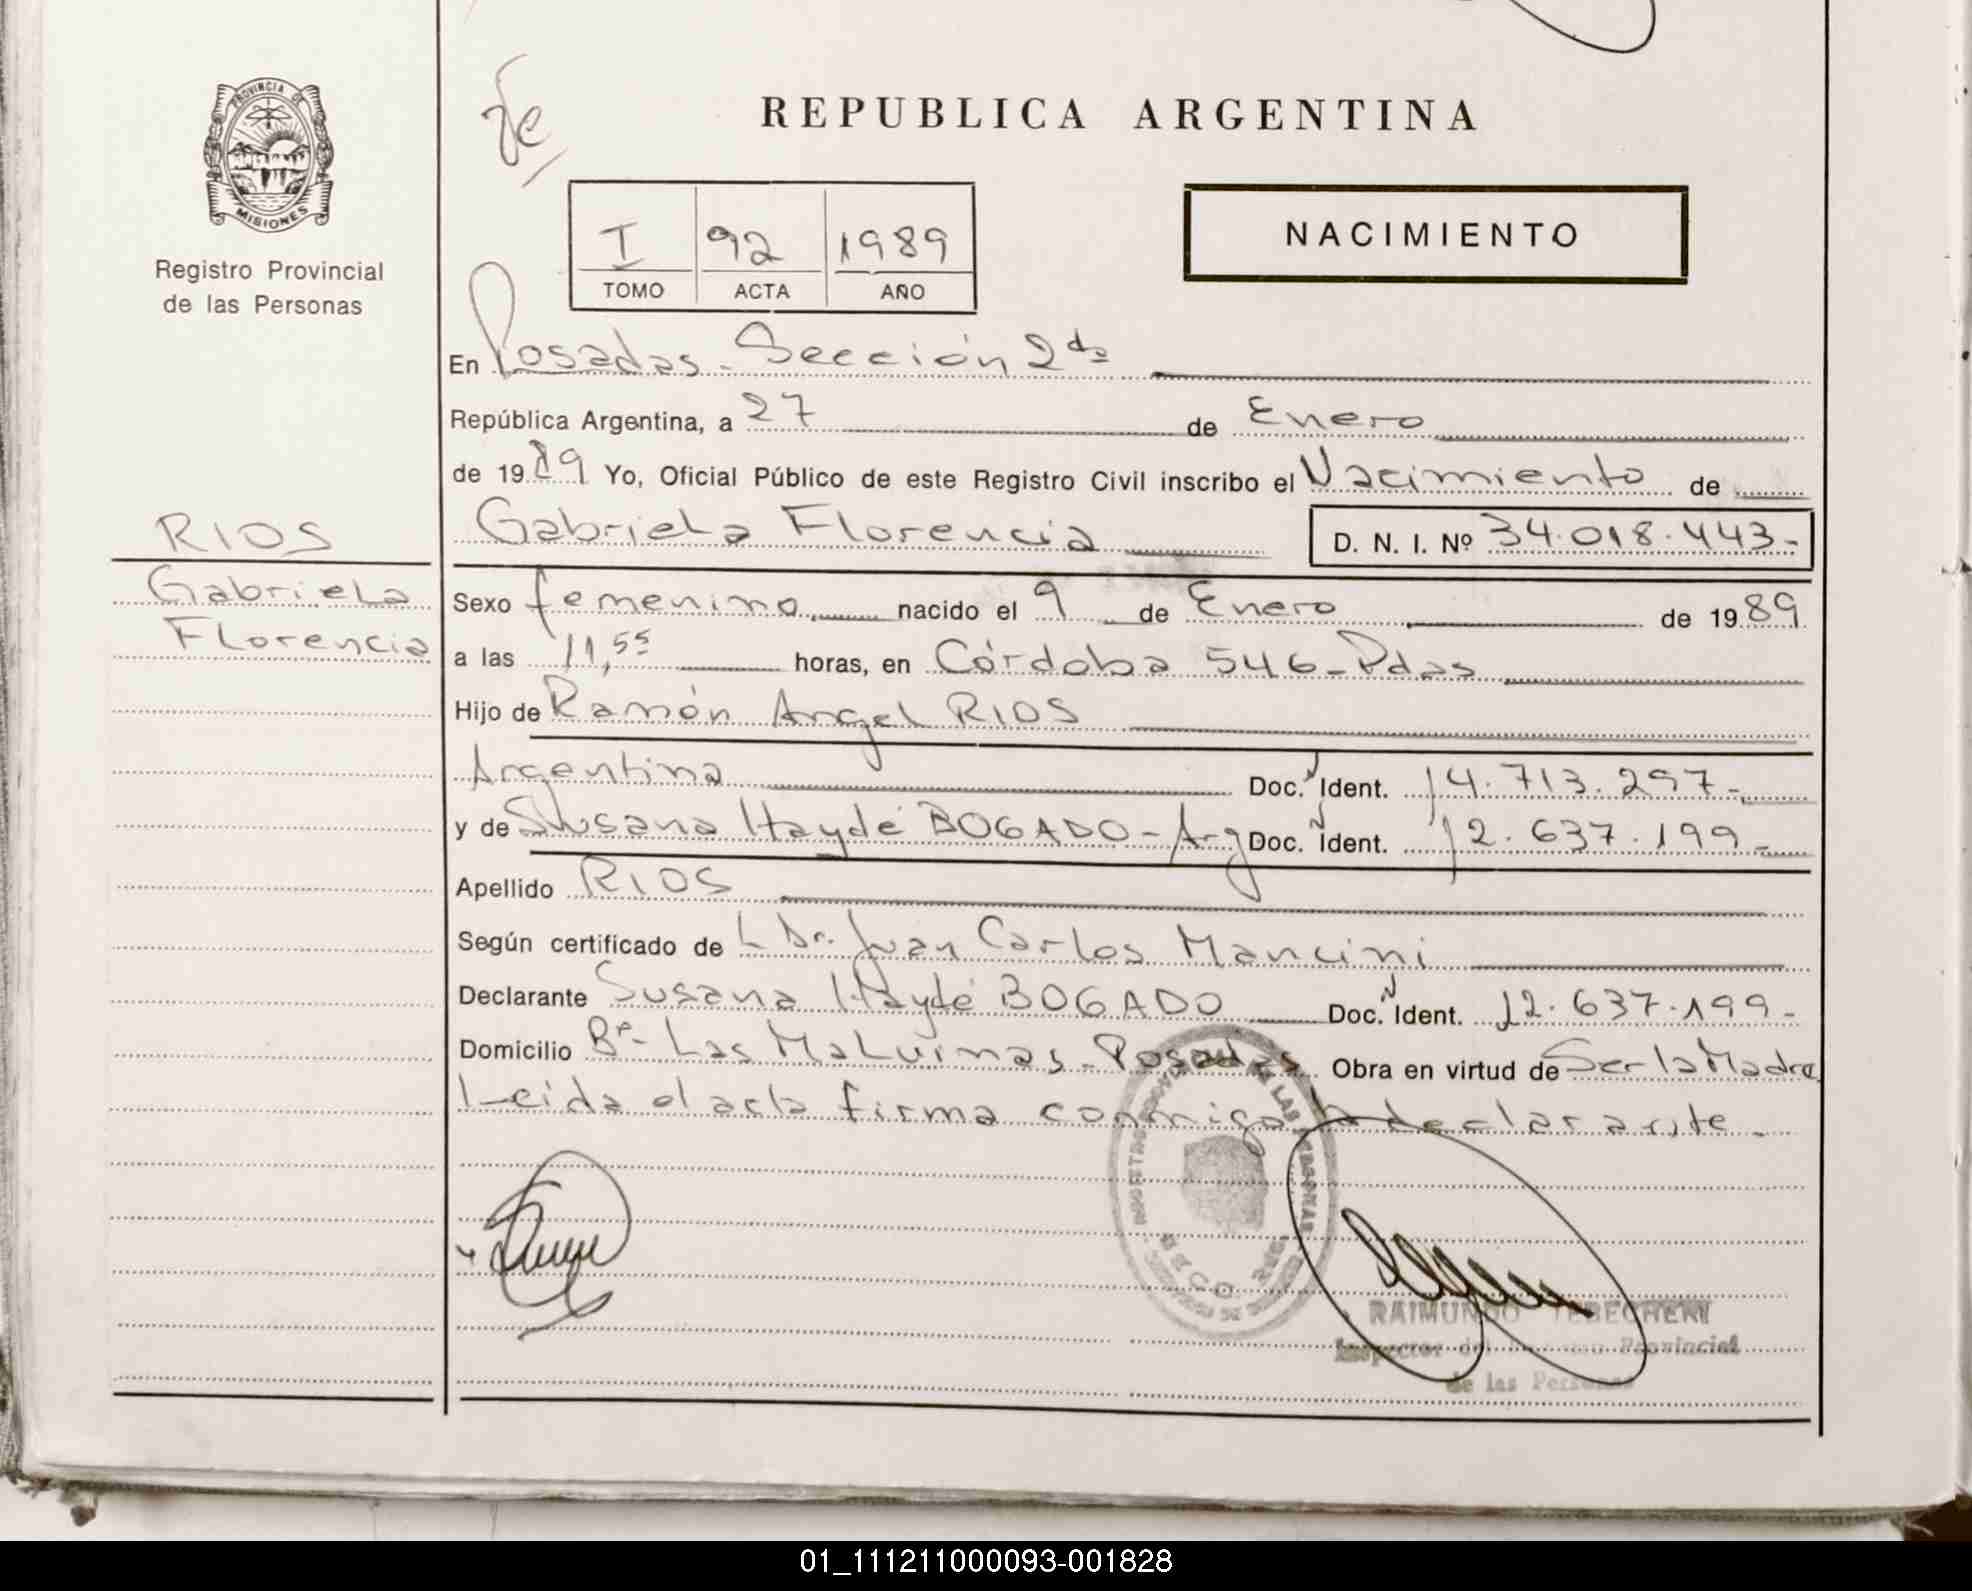 PROVINCIA DE
MISIONES
Registro Provincial
de las Personas
REPUBLICA ARGENTINA
I 92 1989
TOMO ACTA AÑO
NACIMIENTO
En Posadas - Sección 2da
República Argentina, a 27 de Enero
de 1989 Yo, Oficial Público de este Registro Civil inscribo el Nacimiento de
RIOS
Gabriela
Florencia
Gabriela Florencia D. N. I. Nº 34.018.443-
Sexo femenino nacido el 9 de Enero de 1989
a las 11,55 horas, en Córdoba 546 - Pdas
Hijo de Ramón Angel RIOS
Argentina Doc. N Ident. 14.713.297-
y de Susana Haydé BOGADO - Arg Doc. N Ident. 12.637.199-
Apellido RIOS
Según certificado de L Dr. Juan Carlos Mancini
Declarante Susana Haydé BOGADO Doc. N Ident. 12.637.199-
Domicilio Bº- Las Malvinas - Posadas Obra en virtud de Ser la Madre
Leida el acta firma conmigo la declarante.
RAIMUNDO TEBECHERI
Inspector del Provincial
de las Personas
01_111211000093-001828